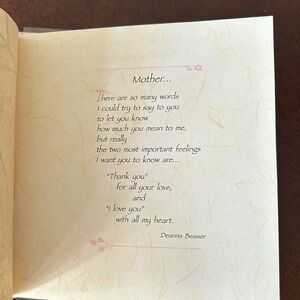 Mother...
There are so many words
I could try to say to you
to let you know
how much you mean to me,
but really
the two most important feelings
I want you to know are...
"Thank you"
for all your love,
and
"I love you"
with all my heart.
Deanna Beisser